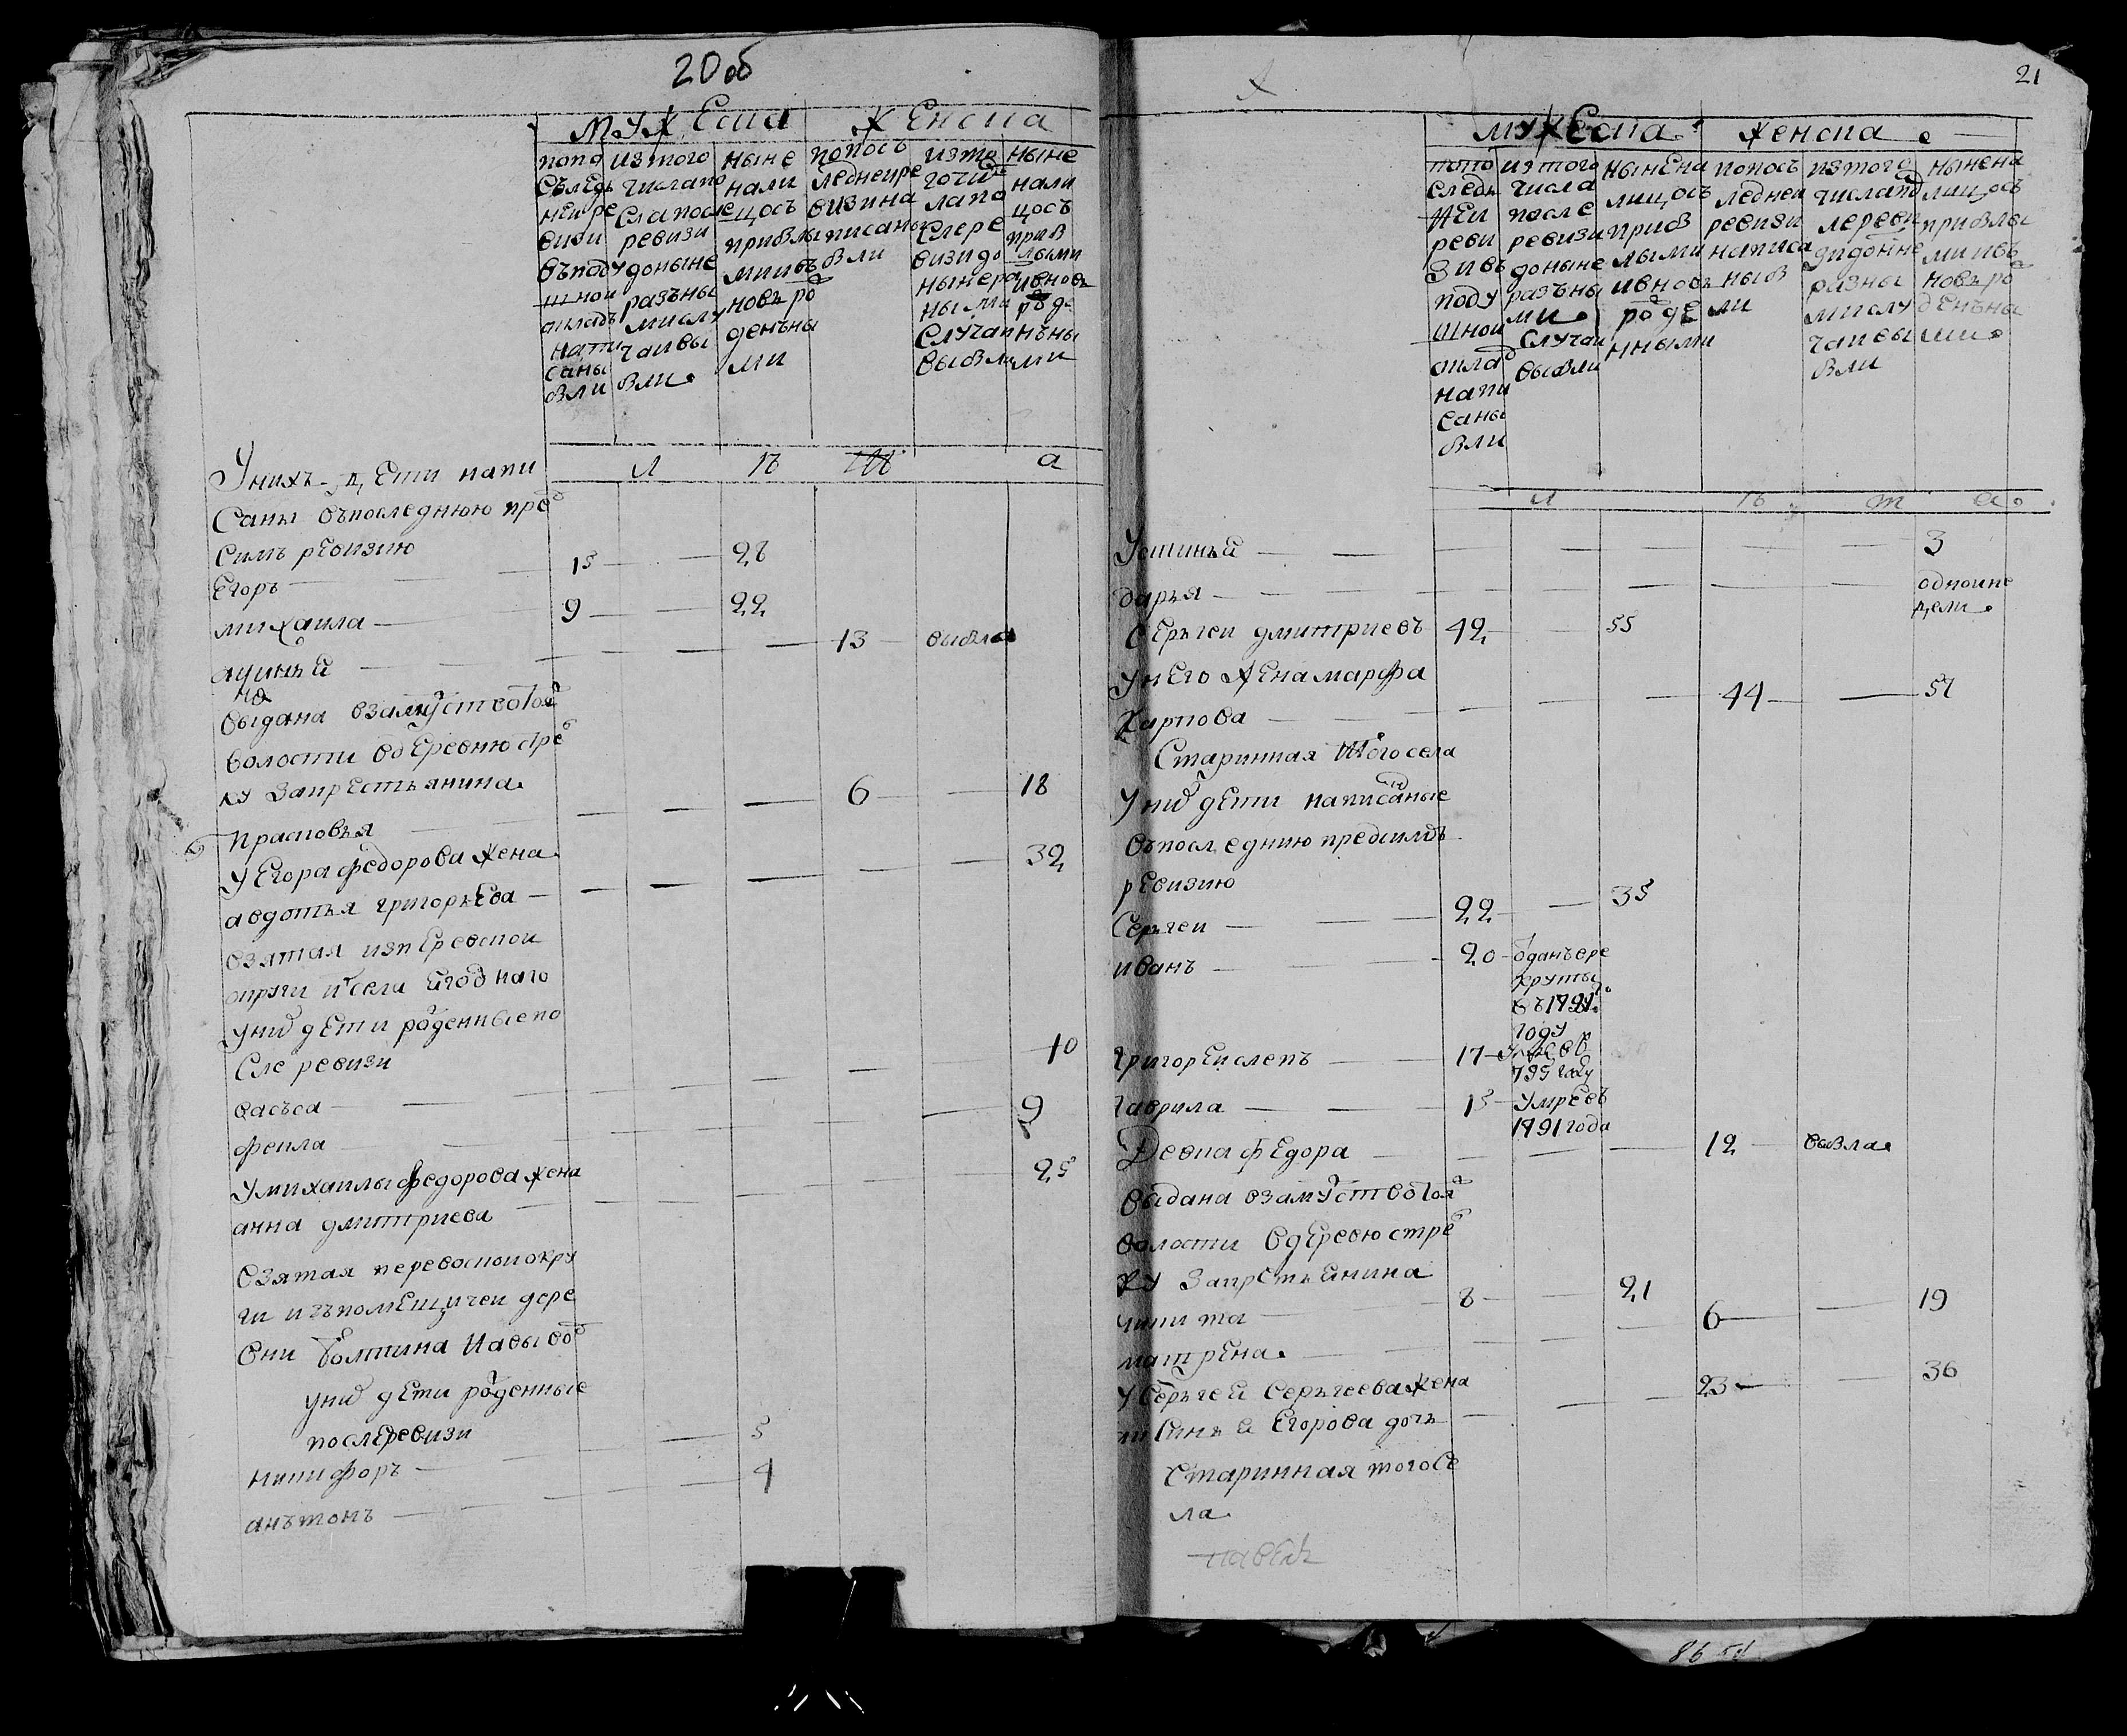 20 об
МУЖЕска ЖЕнска
попо
слѣдь
неи ре
визи
въподу
шнои
окладъ
напи
саны
были
изтого
числапо
слапосле
ревизи
доныне
разъны
мислу
чаивы
были.
ныне
нали
цось
прибылы
мии въ
новь ро
денъны
ми
попось
леднеире
визина
писаны
были
изто
гочис
лапо
слере
визи до
ныне ра
ны ми
случаи
выбыли
ныне
нали
цось
приб
лыми
ивновь
роде
нъны
ми
л въ а
Унихъ дЕти напи
Саны въпоследнюю пред
Симъ рЕвизию
Егоръ 15 28
михаила 9 22
13 выбыла
выдана взамуство тоя
волости вдЕревню стрѣ
ку ЗакрЕстьянина.
прасковья 6 18
УЕгора федорова жена
авдотья григорьЕва 32
взятая
округи
унихъ дЕти роденныепо
Сле ревизи
васъса 10
фекла 9
Умихаилы федорова жена
анна дмитриева 25
взятая перевоскои окру
ги изъпомЕщичеи дере
вни болтина
унихъ дЕти роденные
послЕревизи
никифоръ 5
анътонъ 4
21
МУЖЕска. Женска.
попо
следь
неи
реви
зивъ
поду
шнои
оклад
напи
саны
были
изтого
числа
после
ревизи
доныне
разъны
ми.
Случаи
выбыли
нынена
лицось
приб
лыми
ивновь
родЕ
нными
попось
леднеи
ревизи
написа
ныбы
ли
изтого
числапо
леревы
зидоныне
разны
мислу
чаивы
были
нынена
лицось
прибылы
миивъ
новьро
дЕнъна
ми.
л въ т а.
Устинья 3
дарья одноине
дели.
СЕрьгеи дмитриевъ 42 55
УнЕго жЕна марфа
карпова 44 57
Старинная Тогосела
Унихъ дЕти написаные
въпоследнию предсимъ
рЕвизию
Серьгеи 22 35
иванъ 20 отданъвре
круты
въ 1791.
году
григорЕислепъ 17 умрЕвъ
795 году
гаврила 15 УмрЕвъ
1791 года
Девка фЕдора 12 выбыла.
выдана взамуство тоя
волости вдЕревю стрѣ
ку Закрстьянина
никита 8 21
матрЕна. 6 19
УСЕрьгея Серьгеева жена
аксинья Егорова дочь 23 36
Старинная тогосе
ла
86